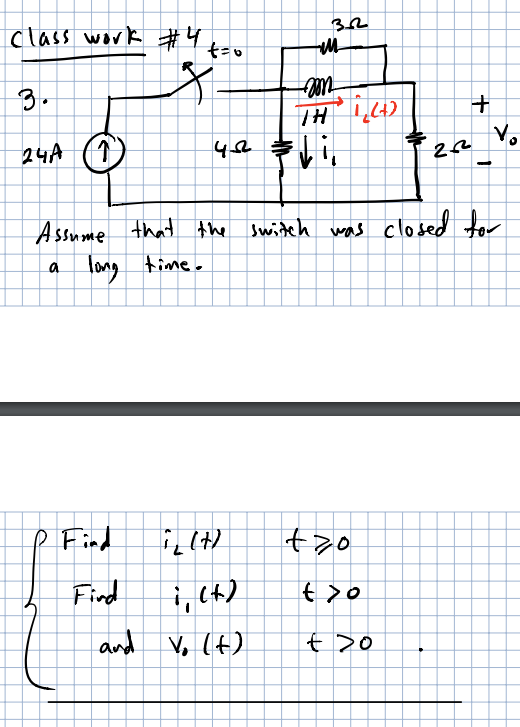 Class work #4
t=0
3Ω
3.
1H
i_L(t)
+
24A
4Ω
i₁
2Ω
V₀
-
Assume that the switch was closed for
a long time.
Find i_L(t) t⩾0
Find i₁(t) t>0
and V₀(t) t>0.